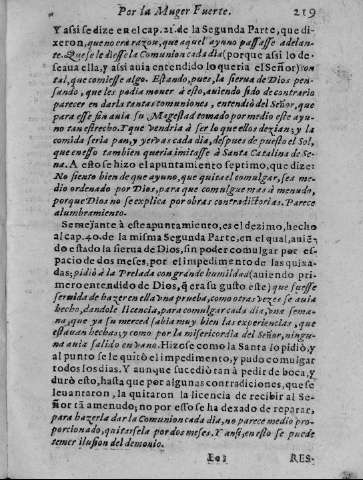 Por la Muger Fuerte. 219
Y assi se dize en el cap. 21. de la Segunda Parte, que di-
xeron, que no era razon, que aquel ayuno passasse adelan-
te. Que se le diesse la Comunion cada dia (porque assi lo de-
seaua ella, y assi auia entendido lo queria el Señor) con
tal, que comiesse algo. Estando, pues, la sierua de Dios pen-
sando, que les podia mouer à esto, auiendo sido de contrario
parecer en darla tantas comuniones, entendiò del Señor, que
para esse fin auia su Magestad tomado por medio este ayu-
no tan estrecho. Y que vendria à ser lo que ellos dezian; y la
comida seria pan, y yervas cada dia, despues de puesto el Sol,
que en esso tambien queria imitasse à Santa Catalina de Se-
na. A esto se hizo el apuntamiento septimo, que dize:
No siento bien de que ayuno, que quita el comulgar, sea me-
dio ordenado por Dios, para que comulgue mas à menudo,
porque Dios no se explica por obras contradictorias. Parece
alumbramiento.
Semejante à este apuntamiento, es el dezimo, hecho
al cap. 40. de la misma Segunda Parte, en el qual, auiẽ-
do estado la sierua de Dios, sin poder comulgar por es-
pacio de dos meses, por el impedimento de las quixa-
das; pidiò à la Prelada con grande humildad (auiendo pri-
mero entendido de Dios, q̃ era su gusto este) que fuesse
seruida de hazer en ella vna prueba, como otras vezes se auia
hecho, dandole licencia, para comulgar cada dia, vna sema-
na, que ya su merced sabia muy bien las experiencias, que
estauan hechas; y como por la misericordia del Señor, ningu-
na auia salido en vano. Hizose como la Santa lo pidiò, y
al punto se le quitò el impedimento, y pudo comulgar
todos los dias. Y aunque sucediò tan à pedir de boca, y
durò esto, hasta que por algunas contradiciones, que se
leuantaron, la quitaron la licencia de recibir al Se-
ñor tã amenudo; no por esso se ha dexado de reparar,
para hazerla dar la Comunion cada dia, no parece medio pro-
porcionado, quitarsela por dos meses. Y ansi, en esto se puede
temer ilusion del demonio.
Ee 2 RES-